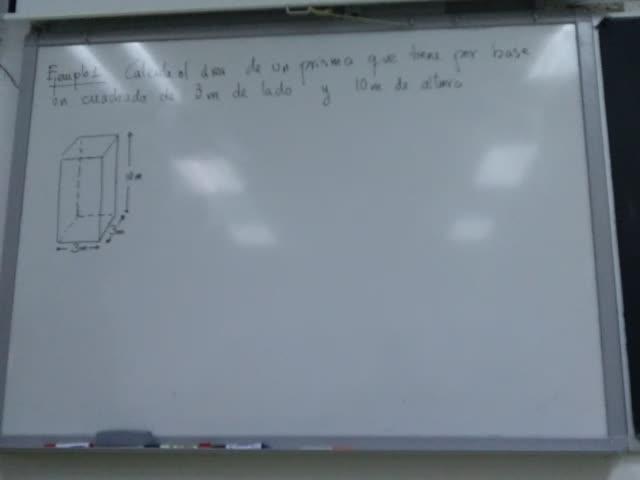 Ejemplo 1 Calcula el área de un prisma que tiene por base
un cuadrado de 3m de lado y 10m de altura
10m
3m
3m